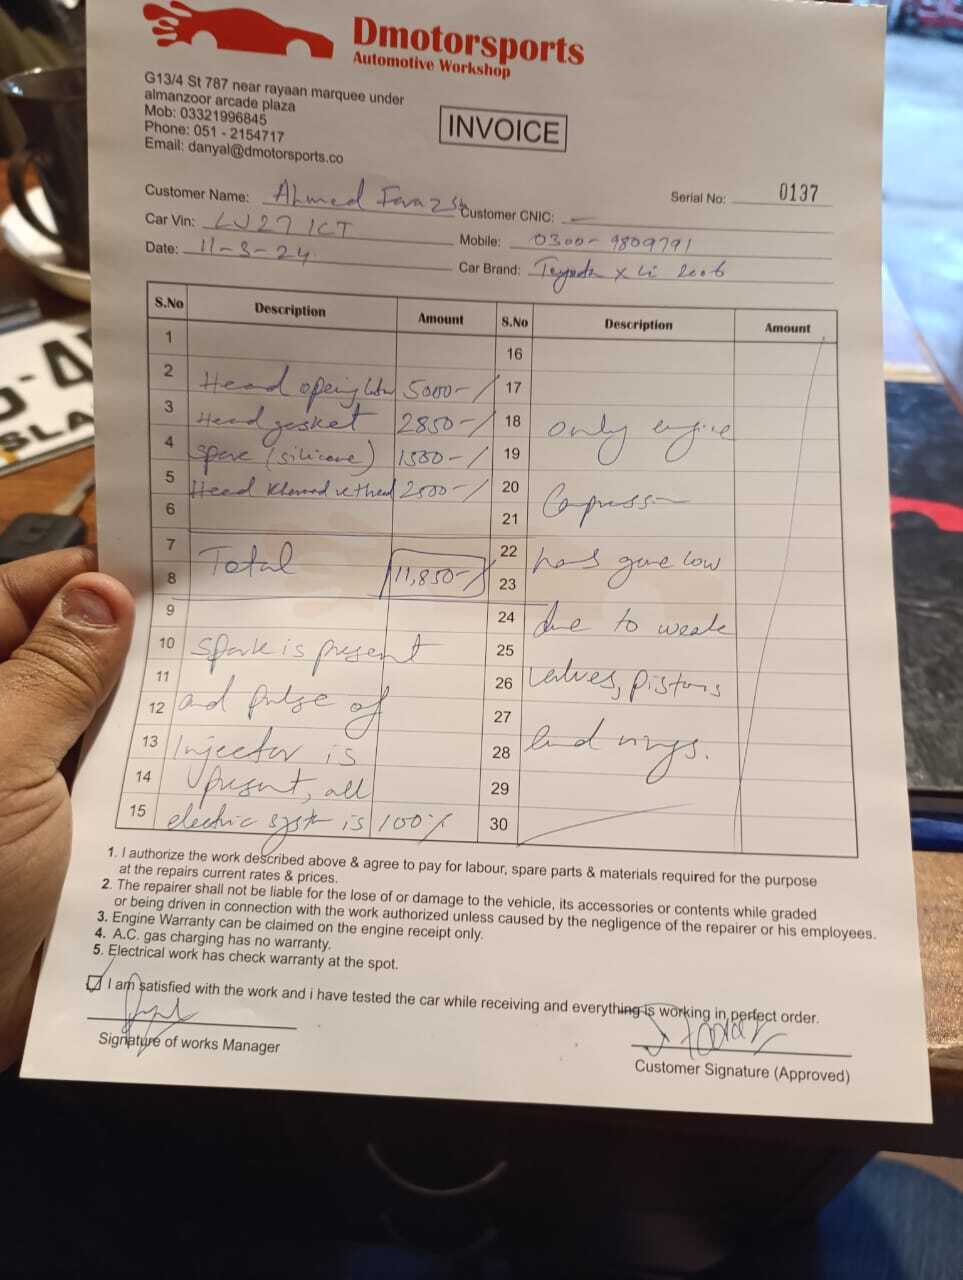 Dmotorsports
Automotive Workshop
G13/4 St 787 near rayaan marquee under
almanzoor arcade plaza
Mob: 03321996845
Phone: 051 - 2154717
Email: danyal@dmotorsports.co
INVOICE
Serial No: 0137
Customer Name: Ahmed Faraz Sb
Customer CNIC: —
Car Vin: LV 271CT
Mobile: 0300-9809791
Date: 11-3-24
Car Brand: Toyota XLi 2006
S.No Description Amount S.No Description Amount
1
2 Head opening 5000-/
3 Head gasket 2850-/
4 (Silicone) 1500-/
5 Head 2500-/
6
7 Total 11,850-/
8
9
10 Spark is present
11 and pulse of
12
13 Injector is
14 present, all
15 electric system is 100%
16
17
18 only engine
19
20 Compression
21
22 has gone low
23
24 due to weak
25
26 valves, pistons
27
28 and rings.
29
30
1. I authorize the work described above & agree to pay for labour, spare parts & materials required for the purpose
at the repairs current rates & prices.
2. The repairer shall not be liable for the lose of or damage to the vehicle, its accessories or contents while graded
or being driven in connection with the work authorized unless caused by the negligence of the repairer or his employees.
3. Engine Warranty can be claimed on the engine receipt only.
4. A.C. gas charging has no warranty.
5. Electrical work has check warranty at the spot.
I am satisfied with the work and i have tested the car while receiving and everything is working in perfect order.
Signature of works Manager
Customer Signature (Approved)